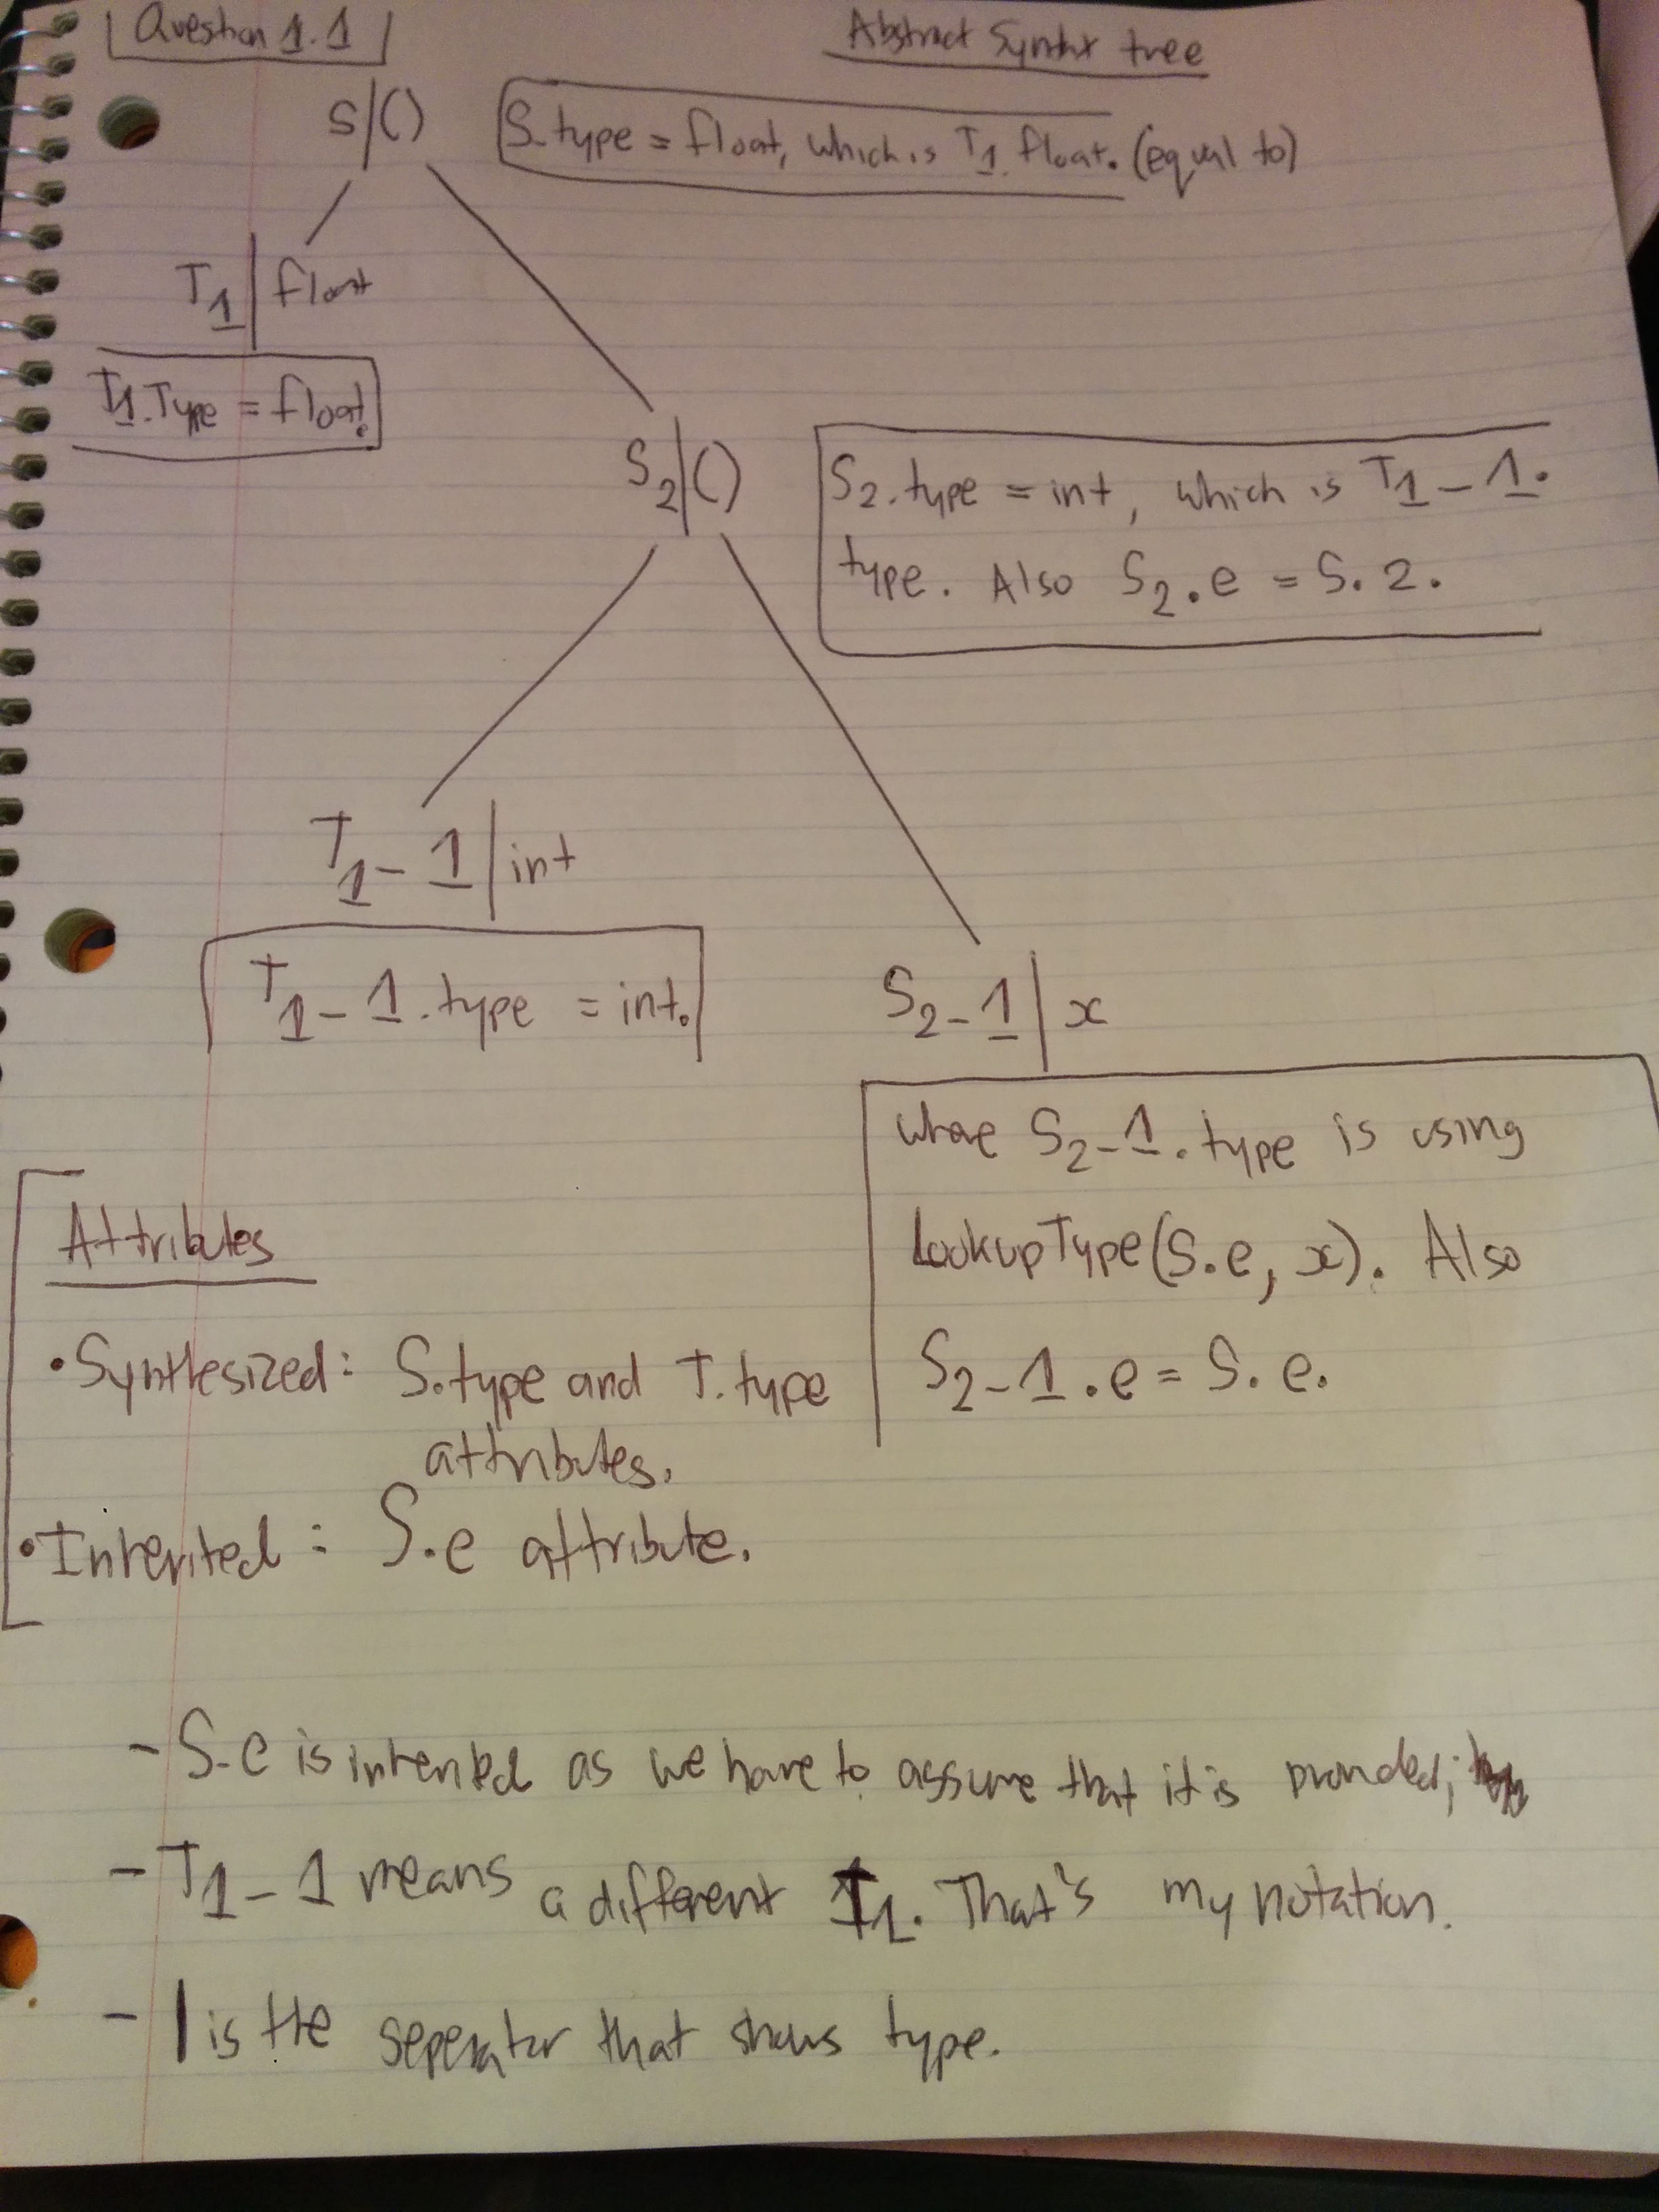 Question 1.1
Abstract Syntax tree
S|()
S.type = float, which is T1.float. (equal to)
T1|float
T1.Type = float.
S2|()
S2.type = int, which is T1-1.
type. Also S2.e = S.2.
T1-1|int
T1-1.type = int.
S2-1|x
where S2-1.type is using
LookupType(S.e, x). Also
S2-1.e = S.e.
Attributes
•Synthesized: S.type and T.type
attributes.
•Inherited: S.e attribute.
- S.e is inherited as we have to assume that it is provided;
- T1-1 means a different T1. That's my notation.
- | is the seperator that shows type.